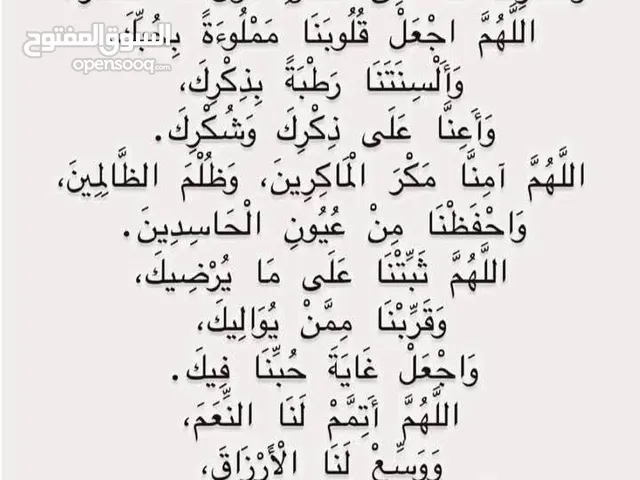 السوق المفتوح
opensooq.com
اللَّهُمَّ اجْعَلْ قُلُوبَنَا مَمْلُوءَةً بِحُبِّكَ،
وَأَلْسِنَتَنَا رَطْبَةً بِذِكْرِكَ،
وَأَعِنَّا عَلَى ذِكْرِكَ وَشُكْرِكَ.
اللَّهُمَّ آمِنَّا مَكْرَ الْمَاكِرِينَ، وَظُلْمَ الظَّالِمِينَ،
وَاحْفَظْنَا مِنْ عُيُونِ الْحَاسِدِينَ.
اللَّهُمَّ ثَبِّتْنَا عَلَى مَا يُرْضِيكَ،
وَقَرِّبْنَا مِمَّنْ يُوَالِيكَ،
وَاجْعَلْ غَايَةَ حُبِّنَا فِيكَ.
اللَّهُمَّ أَتِمَّمْ لَنَا النِّعَمَ،
وَوَسِّعْ لَنَا الْأَرْزَاقَ،